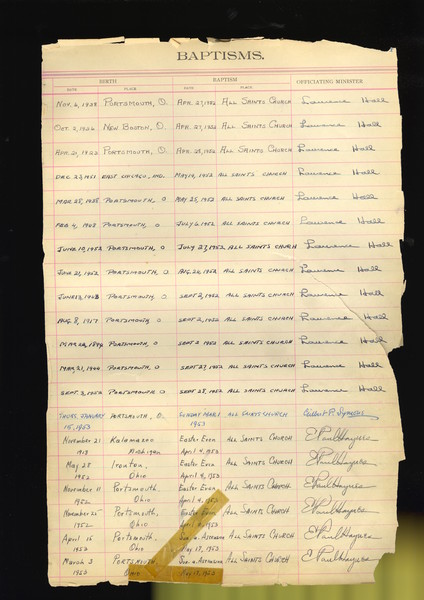 BAPTISMS.
BIRTH BAPTISM OFFICIATING MINISTER
DATE PLACE DATE PLACE
NOV. 2, 1938 PORTSMOUTH, O. APR. 27, 1952 ALL SAINTS CHURCH Lawrence Hall
OCT. 2, 1926 NEW BOSTON, O. APR. 27, 1952 ALL SAINTS CHURCH Lawrence Hall
APR. 21, 1922 PORTSMOUTH, O. APR. 28, 1952 ALL SAINTS CHURCH Lawrence Hall
DEC. 27, 1951 EAST CHICAGO, IND. MAY 10, 1952 ALL SAINTS CHURCH Lawrence Hall
MAR 25, PORTSMOUTH, O MAY 25, 1952 ALL SAINTS CHURCH Lawrence Hall
FEB 4, PORTSMOUTH, O JULY 6, 1952 ALL SAINTS CHURCH Lawrence Hall
JUNE 10, 1952 PORTSMOUTH, O JULY 27, 1952 ALL SAINTS CHURCH Lawrence Hall
21, 1952 PORTSMOUTH, O AUG. 24, 1952 ALL SAINTS CHURCH Lawrence Hall
JUNE 13, PORTSMOUTH, O SEPT 2, 1952 ALL SAINTS CHURCH Lawrence Hall
AUG 8, 1917 PORTSMOUTH, O SEPT 2, 1952 ALL SAINTS CHURCH Lawrence Hall
PORTSMOUTH, O SEPT 2 1952 ALL SAINTS CHURCH Lawrence Hall
MAR, 21, 1944 PORTSMOUTH, O SEPT 27, 1952 ALL SAINTS CHURCH Lawrence Hall
SEPT. 3, 1952 PORTSMOUTH, O SEPT 28, 1952 ALL SAINTS CHURCH Lawrence Hall
THURS. JANUARY PORTSMOUTH, O. SUNDAY MAR 1 ALL SAINTS CHURCH Gilbert P. Symons
15, 1953 1953
November 21 Kalamazoo Easter Even ALL SAINTS CHURCH E Paul Haynes
1919 Michigan April 4, 1953
May 28 Ironton, Easter Even ALL SAINTS CHURCH E Paul Haynes
1952 Ohio April 4, 1953
November 11 Portsmouth, Easter Even ALL SAINTS CHURCH E Paul Haynes
1952 Ohio April 4, 1953
November 25 Portsmouth, Easter Even ALL SAINTS CHURCH E Paul Haynes
1952 Ohio April 4, 1953
April 16 Portsmouth, Sun. a. Ascension ALL SAINTS CHURCH E Paul Haynes
1953 Ohio May 17, 1953
March 3 PORTSMOUTH Sun. a. Ascension ALL SAINTS CHURCH E. Paul Haynes
1953 Ohio May 17, 1953